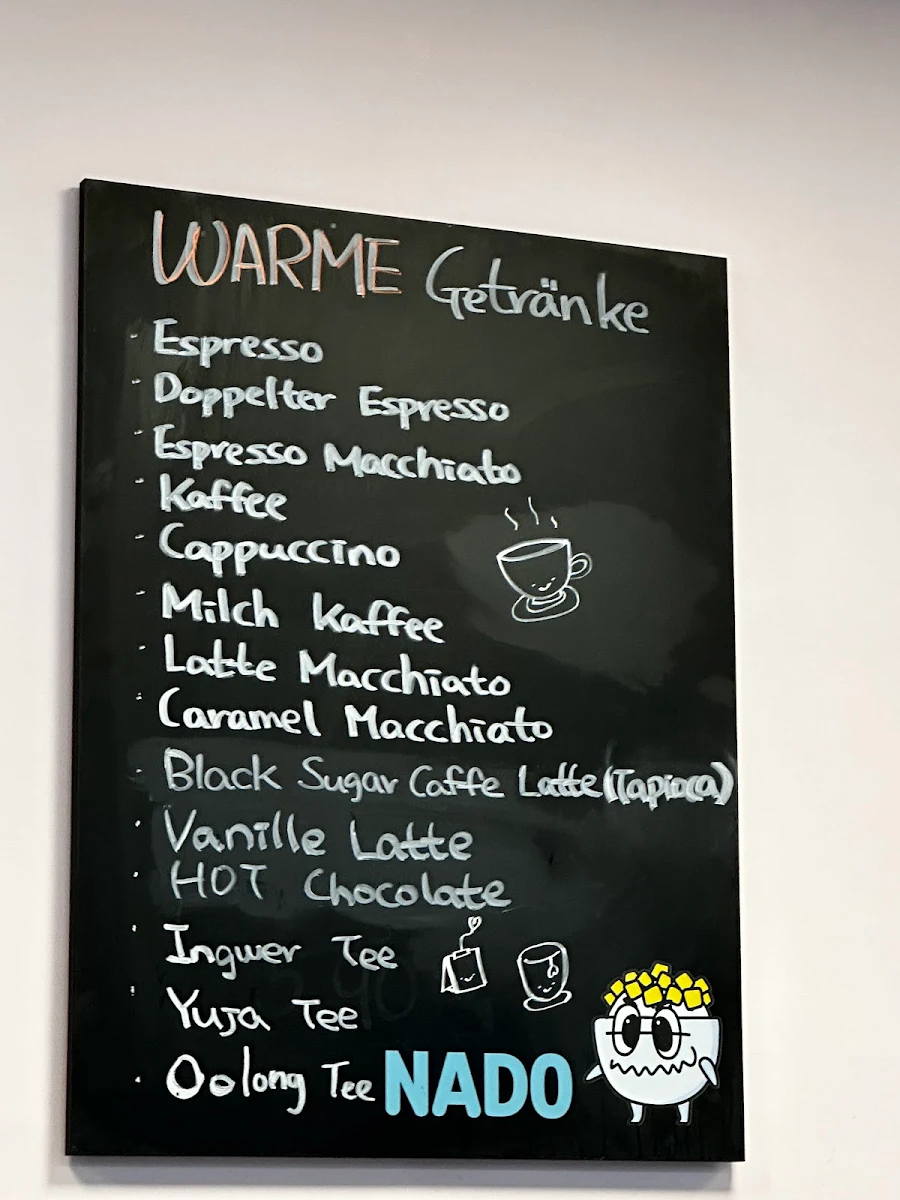 WARME Getränke
- Espresso
- Doppelter Espresso
- Espresso Macchiato
- Kaffee
- Cappuccino
- Milch Kaffee
- Latte Macchiato
- Caramel Macchiato
- Black Sugar Caffe Latte (Tapioca)
- Vanille Latte
- HOT Chocolate
- Ingwer Tee
- Yuja Tee
- Oolong Tee
NADO